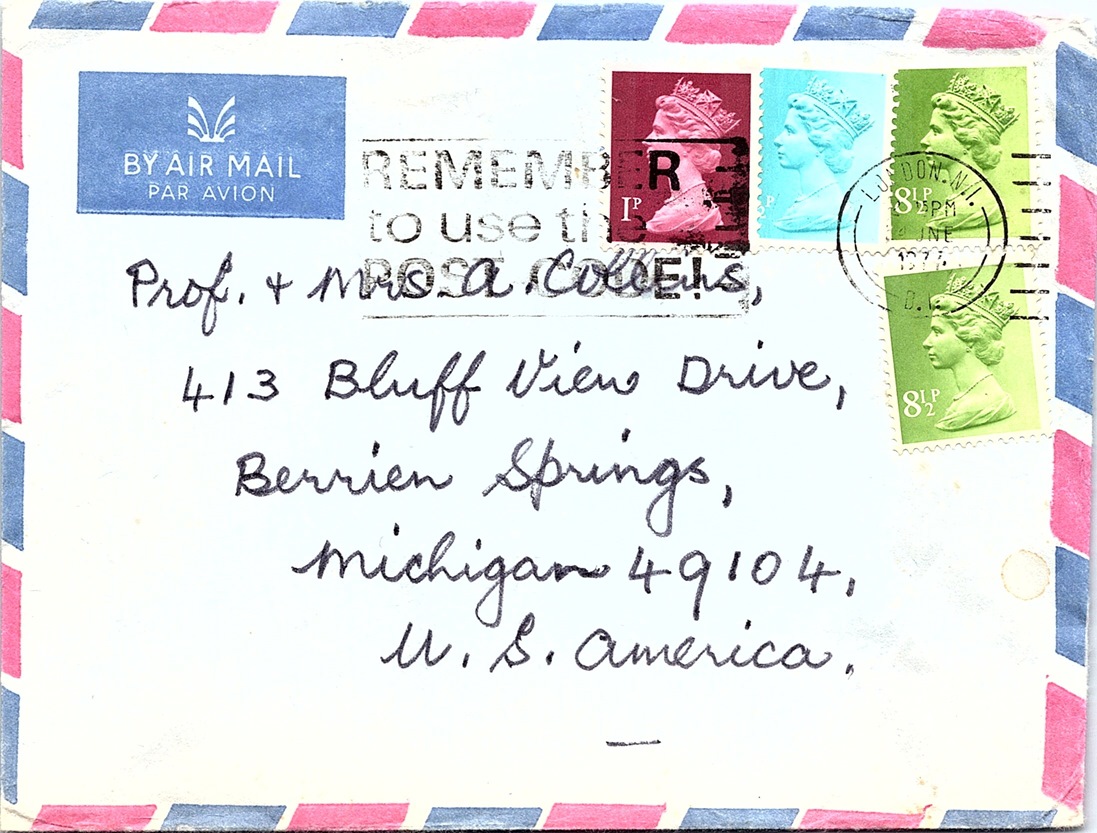 BY AIR MAIL
PAR AVION
REMEMBER
to use the
POST CODE!
1P
8½P
LONDON.N.1.
PM
1977
8½P
Prof. & Mrs. A. Collins,
413 Bluff View Drive,
Berrien Springs,
Michigan 49104,
U. S. America.